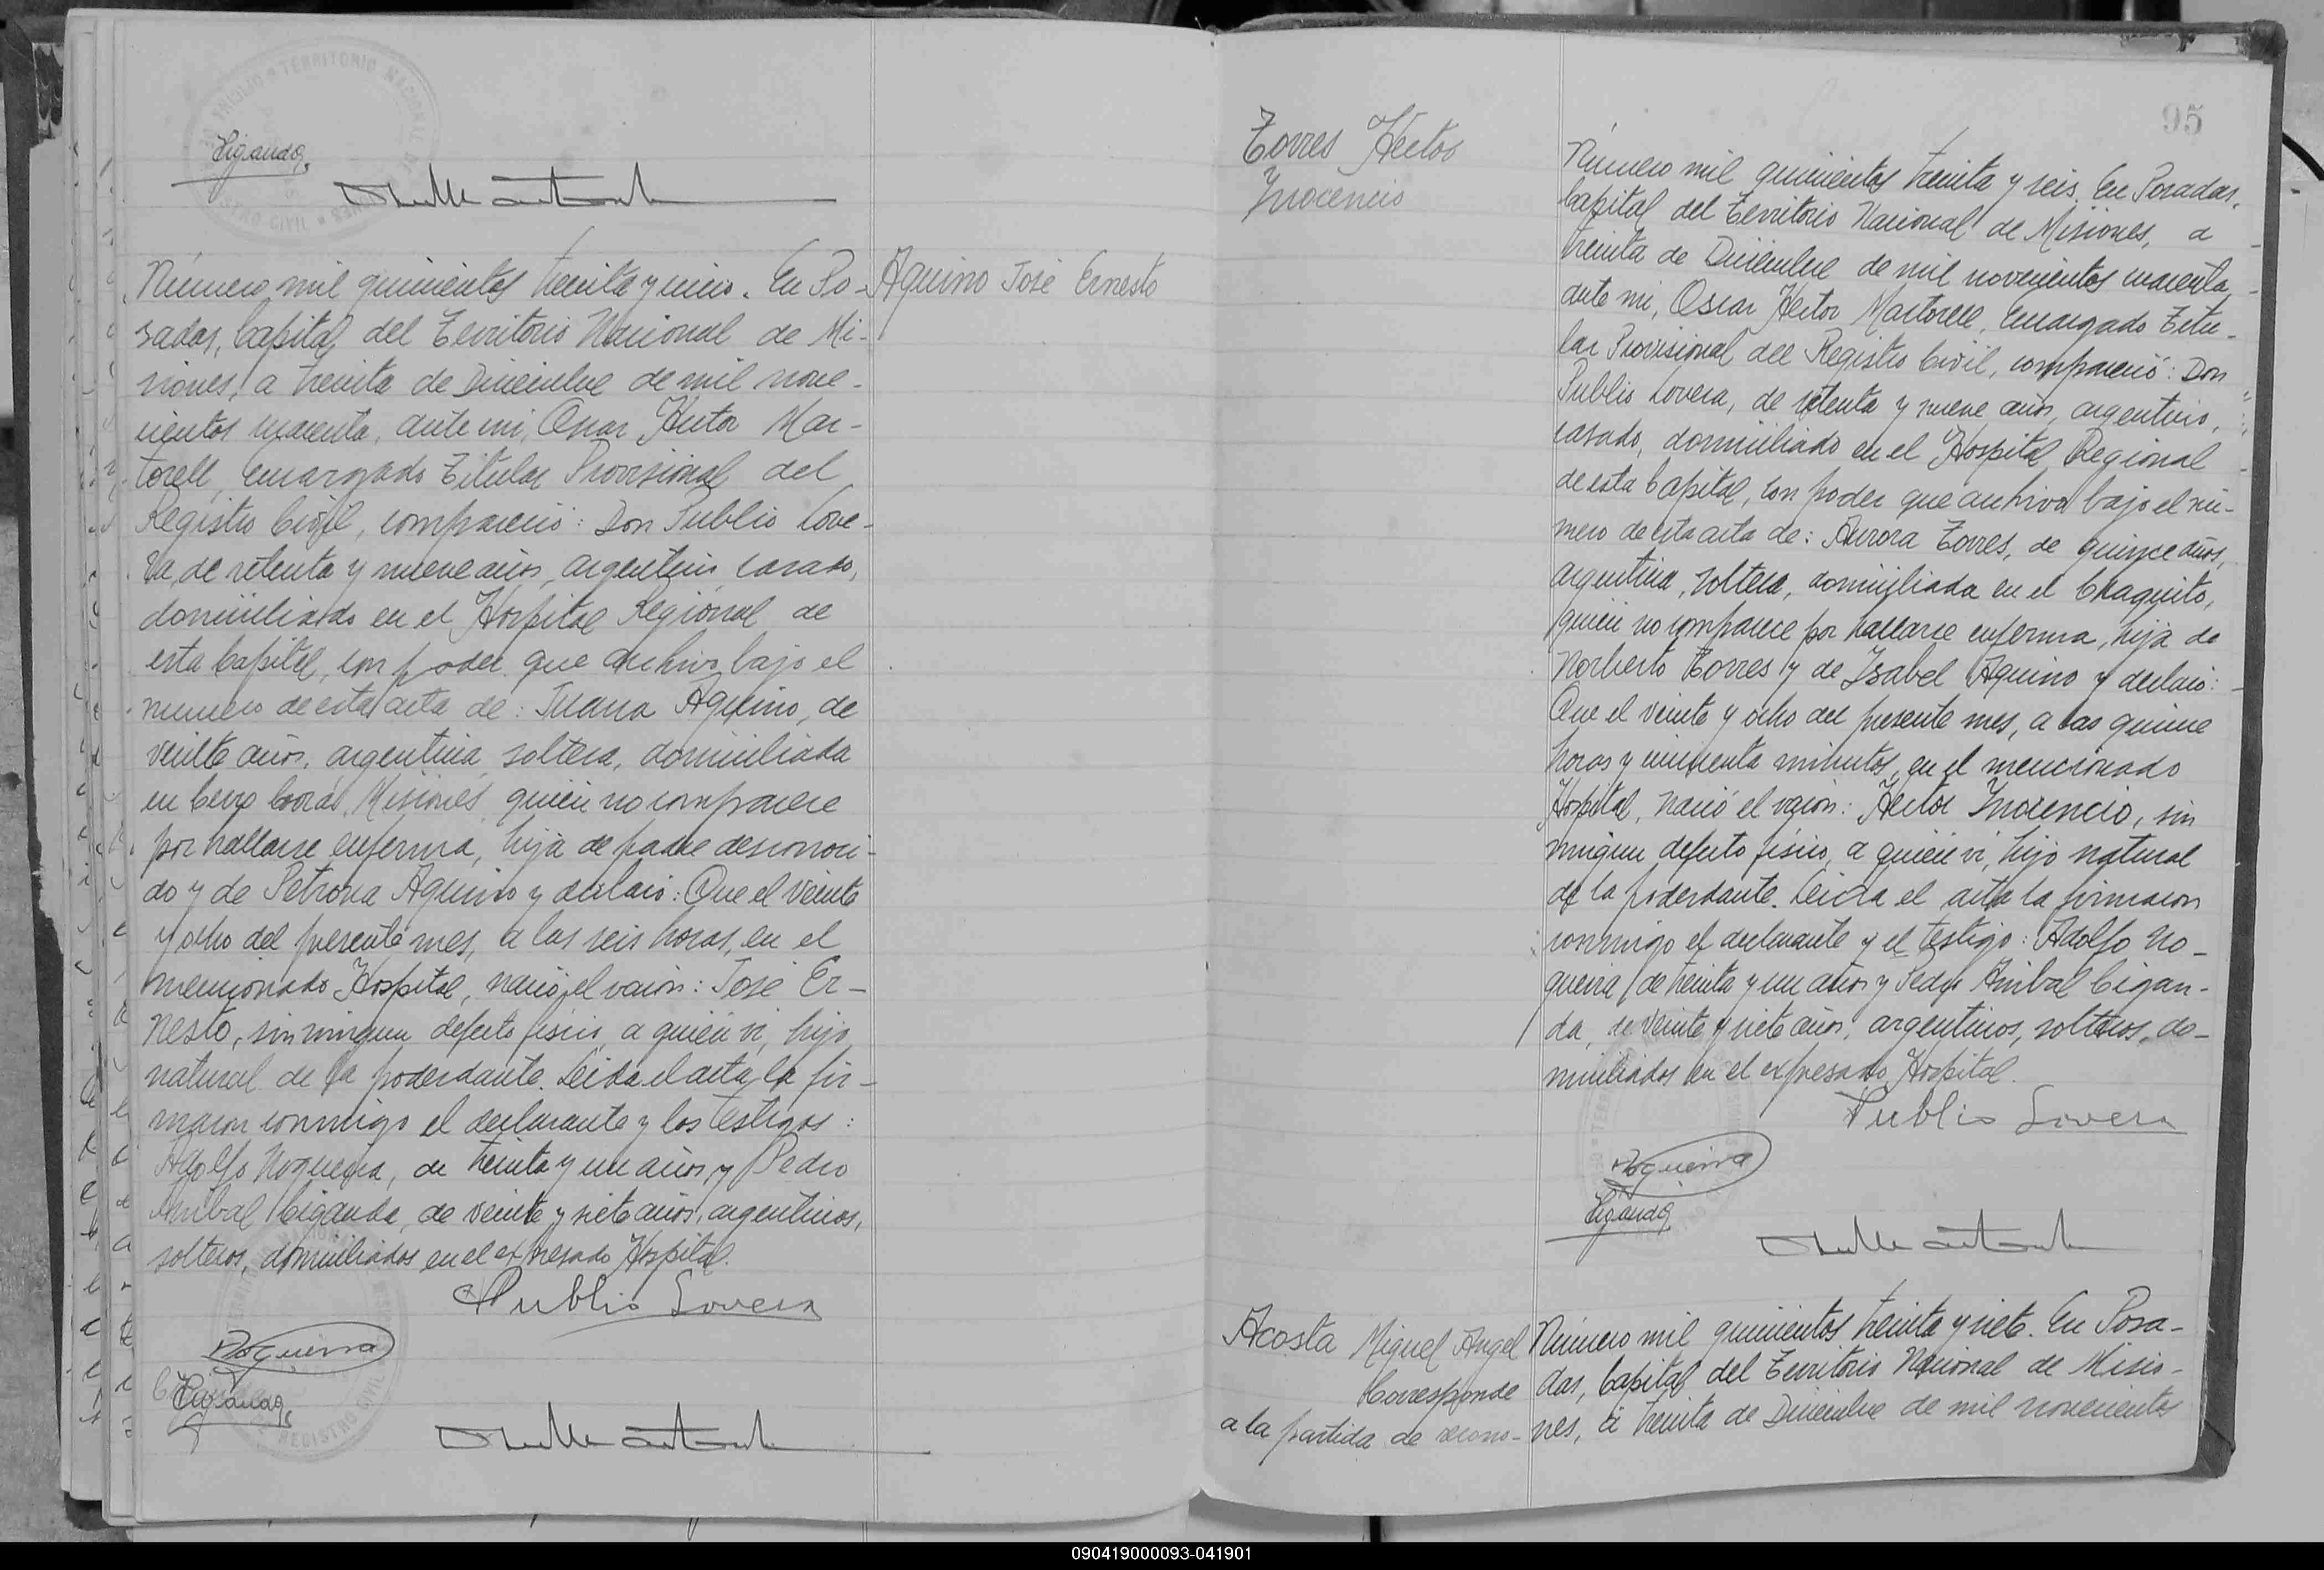 Ciganda
Número mil quinientos treinta y cinco. En Po-
sadas, Capital del Territorio Nacional de Mi-
siones, a treinta de Diciembre de mil nove-
cientos cuarenta, ante mi, Oscar Hector Mar-
torell, Encargado Titular Provisional del
Registro Civil, compareció: Don Publio Love-
ra, de setenta y nueve años, argentino, casado,
domiciliado en el Hospital Regional de
esta Capital, con poder que archivo bajo el
numero de esta acta de: Juana Aquino, de
veinte años, argentina, soltera, domiciliada
en Cerro Corá, Misiones, quién no comparece
por hallarse enferma, hija de padre desconoci-
do y de Petrona Aquino y declaró: Que el veinte
y ocho del presente mes, a las seis horas, en el
mencionado Hospital, nació el varón: José Er-
nesto, sin ningun defecto físico, a quién ví, hijo
natural de la poderdante. Leida el acta, la fir-
maron conmigo el declarante y los testigos:
Adolfo Nogueira, de treinta y un años y Pedro
Anibal Ciganda, de veinte y siete años, argentinos,
solteros, domiciliados en el expresado Hospital.
Publio Lovera
Nogueira
Ciganda
REGISTRO CIVIL
Aquino José Ernesto
95
Torres Hector
Inocencio
Número mil quinientos treinta y seis. En Posadas,
Capital del Territorio Nacional de Misiones, a
treinta de Diciembre de mil novecientos cuarenta,
ante mi, Oscar Hector Martorell, Encargado Titu-
lar Provisional del Registro Civil, compareció: Don
Publio Lovera, de setenta y nueve años, argentino,
casado, domiciliado en el Hospital Regional
de esta Capital, con poder que archivo bajo el nú-
mero de esta acta de: Aurora Torres, de quince años,
argentina, soltera, domiciliada en el Chaquito,
quién no comparece por hallarse enferma, hija de
Norberto Torres y de Isabel Aquino y declaró:
Que el veinte y ocho del presente mes, a las quince
horas y cincuenta minutos, en el mencionado
Hospital, nació el varón: Hector Inocencio, sin
ningun defecto físico, a quién ví, hijo natural
de la poderdante. Leida el acta la firmaron
conmigo el declarante y el testigo: Adolfo No-
gueira, de treinta y un años y Pedro Anibal Cigan-
da, de veinte y siete años, argentinos, solteros, do-
miciliados en el expresado Hospital.
Publio Lovera
Nogueira
Ciganda
Acosta Miguel Angel
Corresponde
a la partida de recono-
Número mil quinientos treinta y siete. En Posa-
das, Capital del Territorio Nacional de Misio-
nes, a treinta de Diciembre de mil novecientos
090419000093-041901